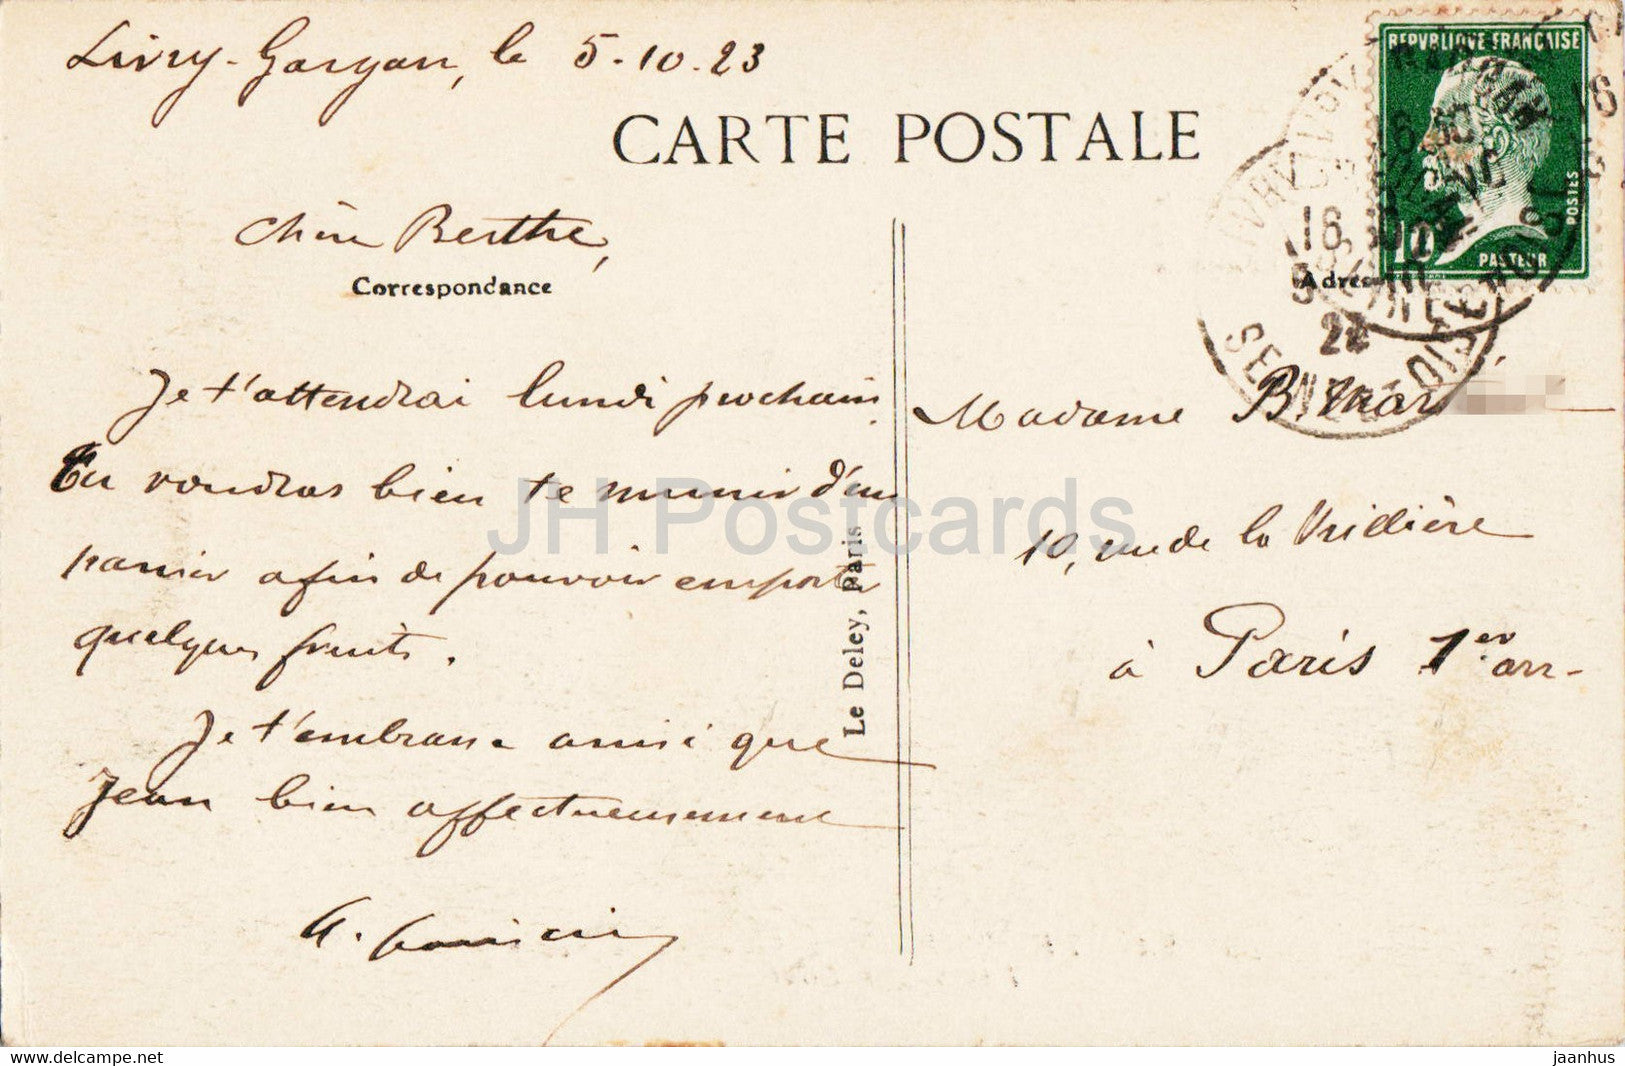 Livry-Gargan, le 5-10-23
CARTE POSTALE
REPVBLIQUE FRANÇAISE
POSTES
10
PASTEUR
16
SEINE
OISE
Chère Berthe,
Correspondance
Adres
Je t'attendrai lundi prochain.
Tu voudras bien te munir d'un
panier afin de pouvoir emporter
quelques fruits.
Je t'embrasse ainsi que
Jean bien affectueusement
Le Deley, Paris
Madame B. Mar
10, rue de la Vrillière
à Paris 1er arr.
JH Postcards
www.delcampe.net
jaanhus